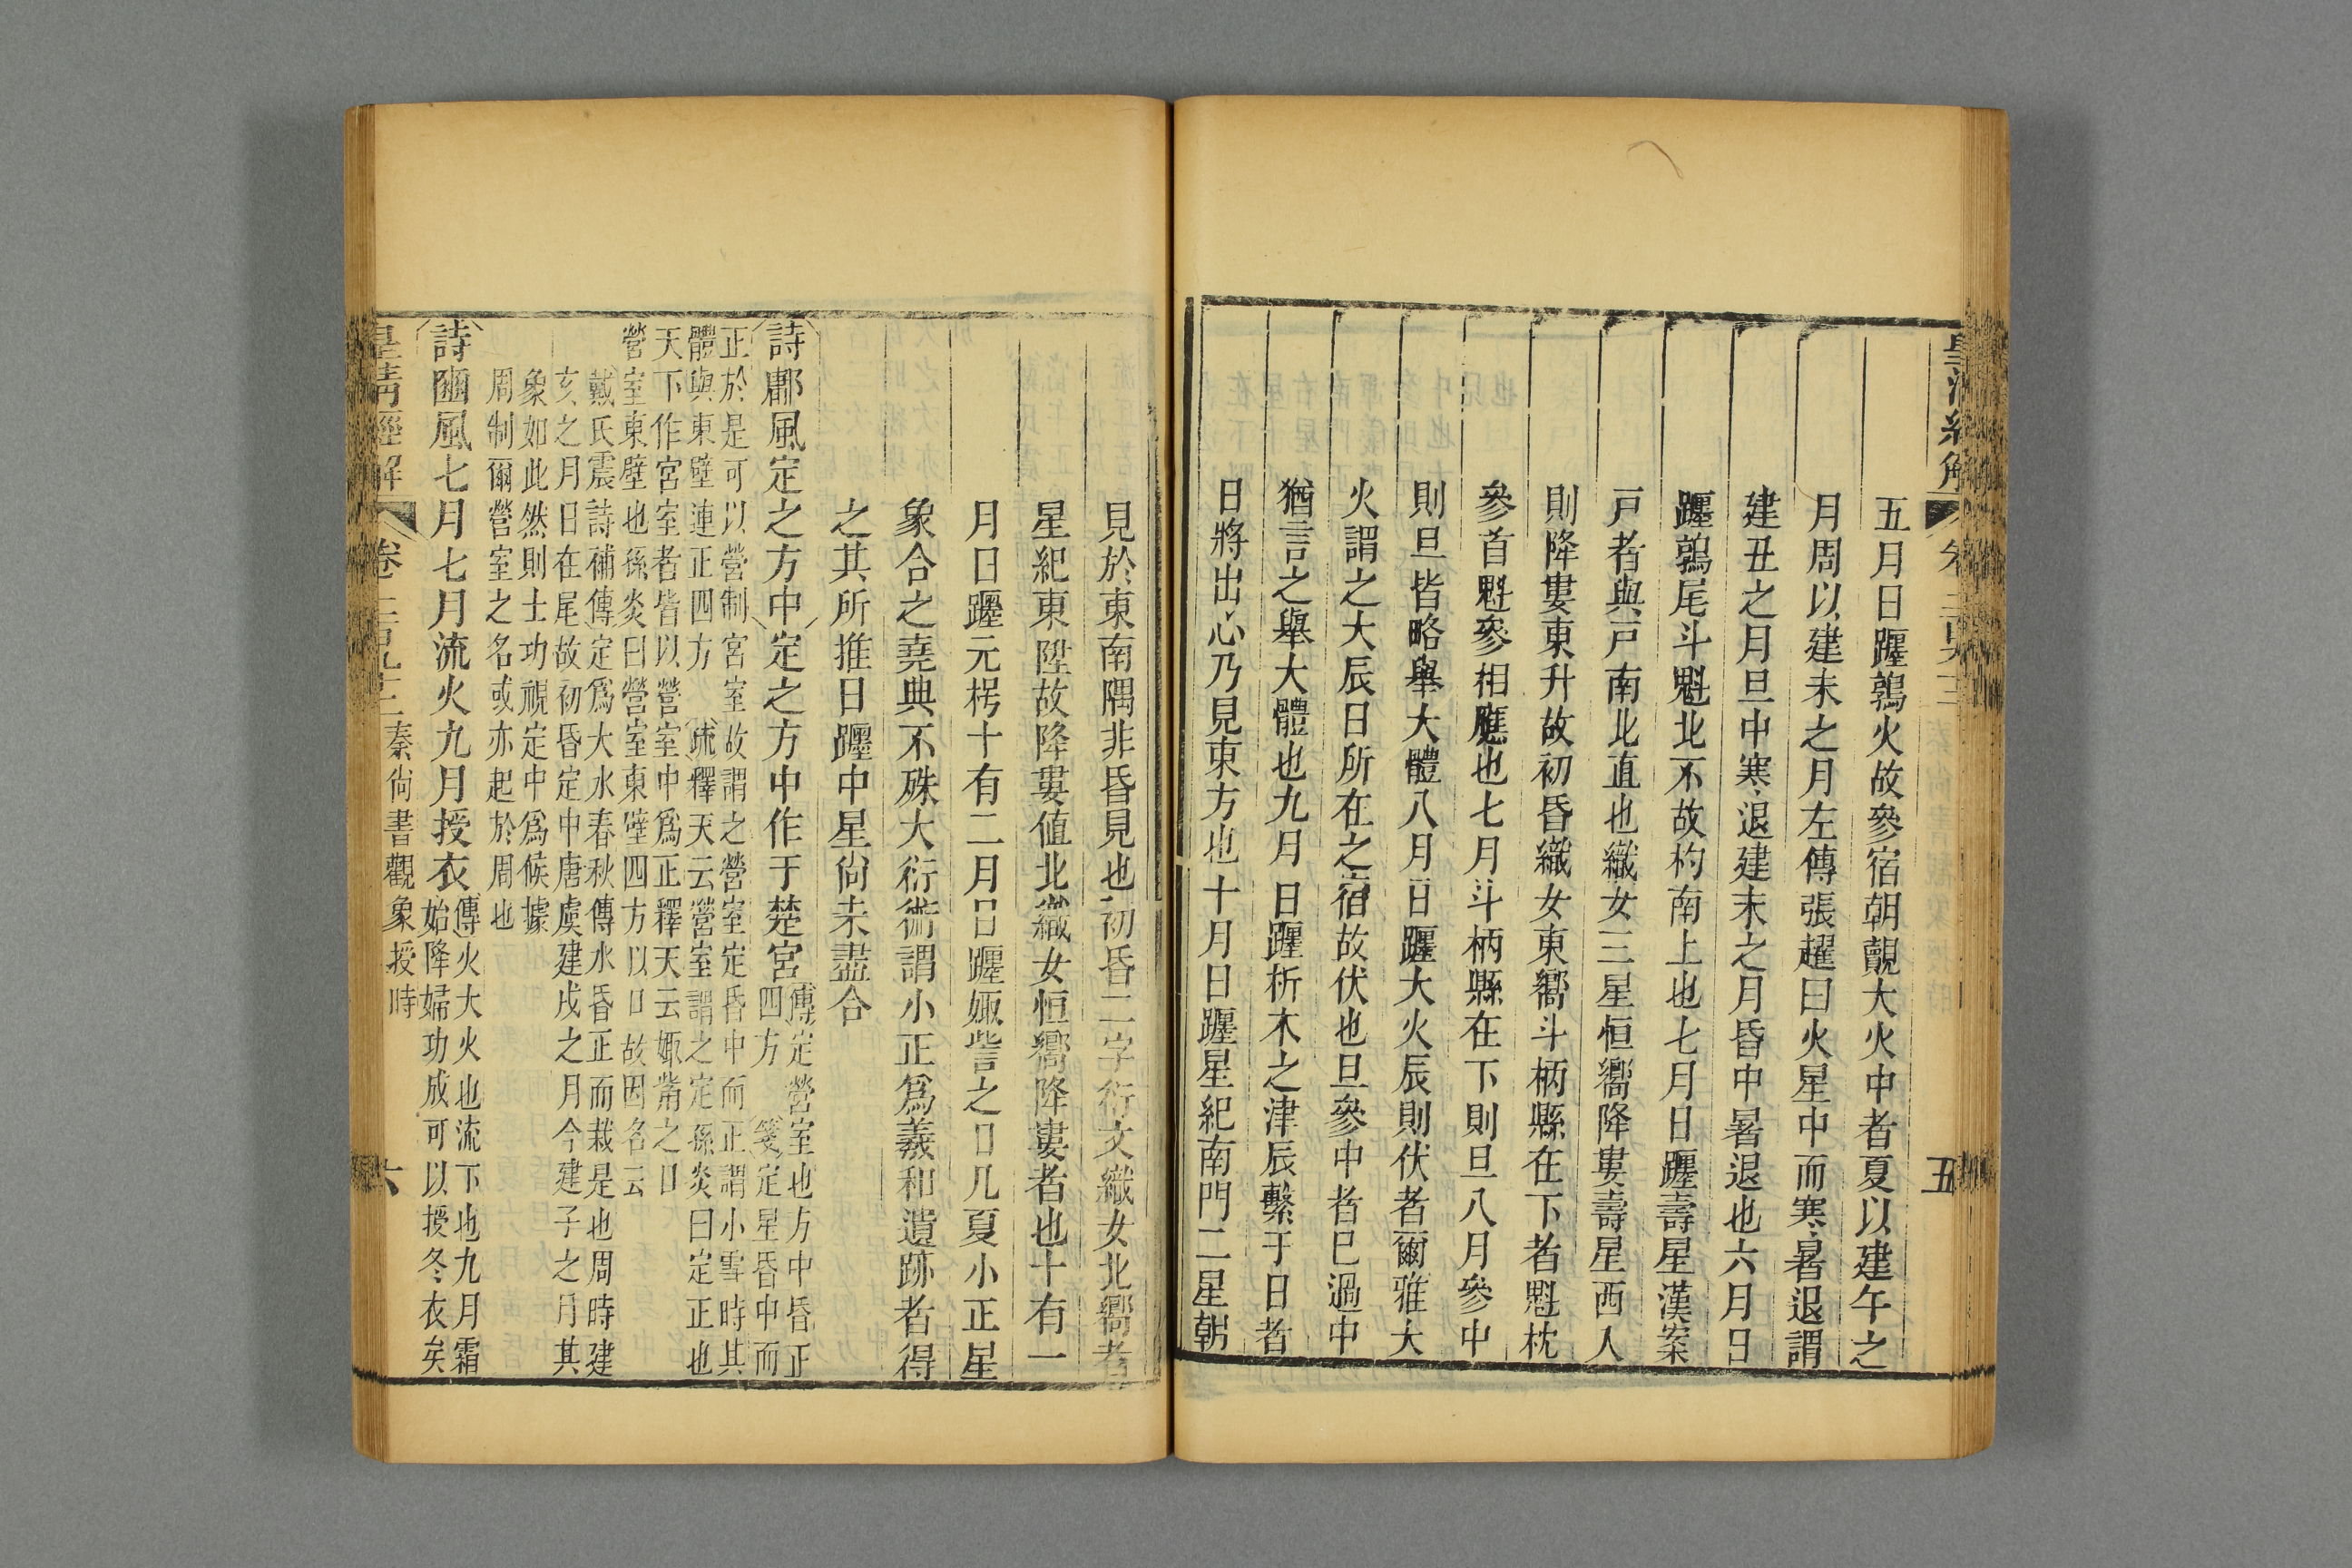 五月日躔鶉火故參宿朝覿大火中者夏以建午之
月周以建未之月左傳張趯曰火星中而寒暑退謂
建丑之月旦中寒退建未之月昏中暑退也六月日
躔鶉尾斗魁北不故杓南上也七月日躔壽星漢案
戸者與戸南北直也織女三星恒嚮降婁壽星西人
則降婁東升故初昏織女東嚮斗柄縣在下者魁枕
參首魁參相應也七月斗柄縣在下則旦八月參中
則旦皆略舉大體八月日躔大火辰則伏者爾雅大
火謂之大辰日所在之宿故伏也旦參中者巳過中
猶言之舉大體也九月日躔析木之津辰繫于日者
日將出心乃見東方也十月日躔星紀南門二星朝
五
見於東南隅非昏見也初昏二字衍文織女北嚮者
星紀東陞故降婁値北織女恒嚮降婁者也十有一
月日躔元枵十有二月日躔娵訾之口凡夏小正星
象合之堯典不殊大衍術謂小正爲羲和遺跡者得
之其所推日躔中星尙未盡合
詩鄘風定之方中定之方中作于楚宮傳定營室也方中昏正
四方箋定星昏中而
正於是可以營制宮室故謂之營室定昏中而正謂小雪時其
體與東壁連正四方疏釋天云營室謂之定孫炎曰定正也
天下作宮室者皆以營室中爲正釋天云娵觜之口
營室東壁也孫炎曰營室東壁四方以口故因名云
戴氏震詩補傳定爲大水春秋傳水昏正而栽是也周時建
亥之月日在尾故初昏定中唐虞建戌之月今建子之月其
象如此然則土功視定中爲候據
周制爾營室之名或亦起於周也
詩豳風七月七月流火九月授衣傳火大火也流下也九月霜
始降婦功成可以授冬衣矣
皇清經解
卷二百九十二
秦尙書觀象授時
六